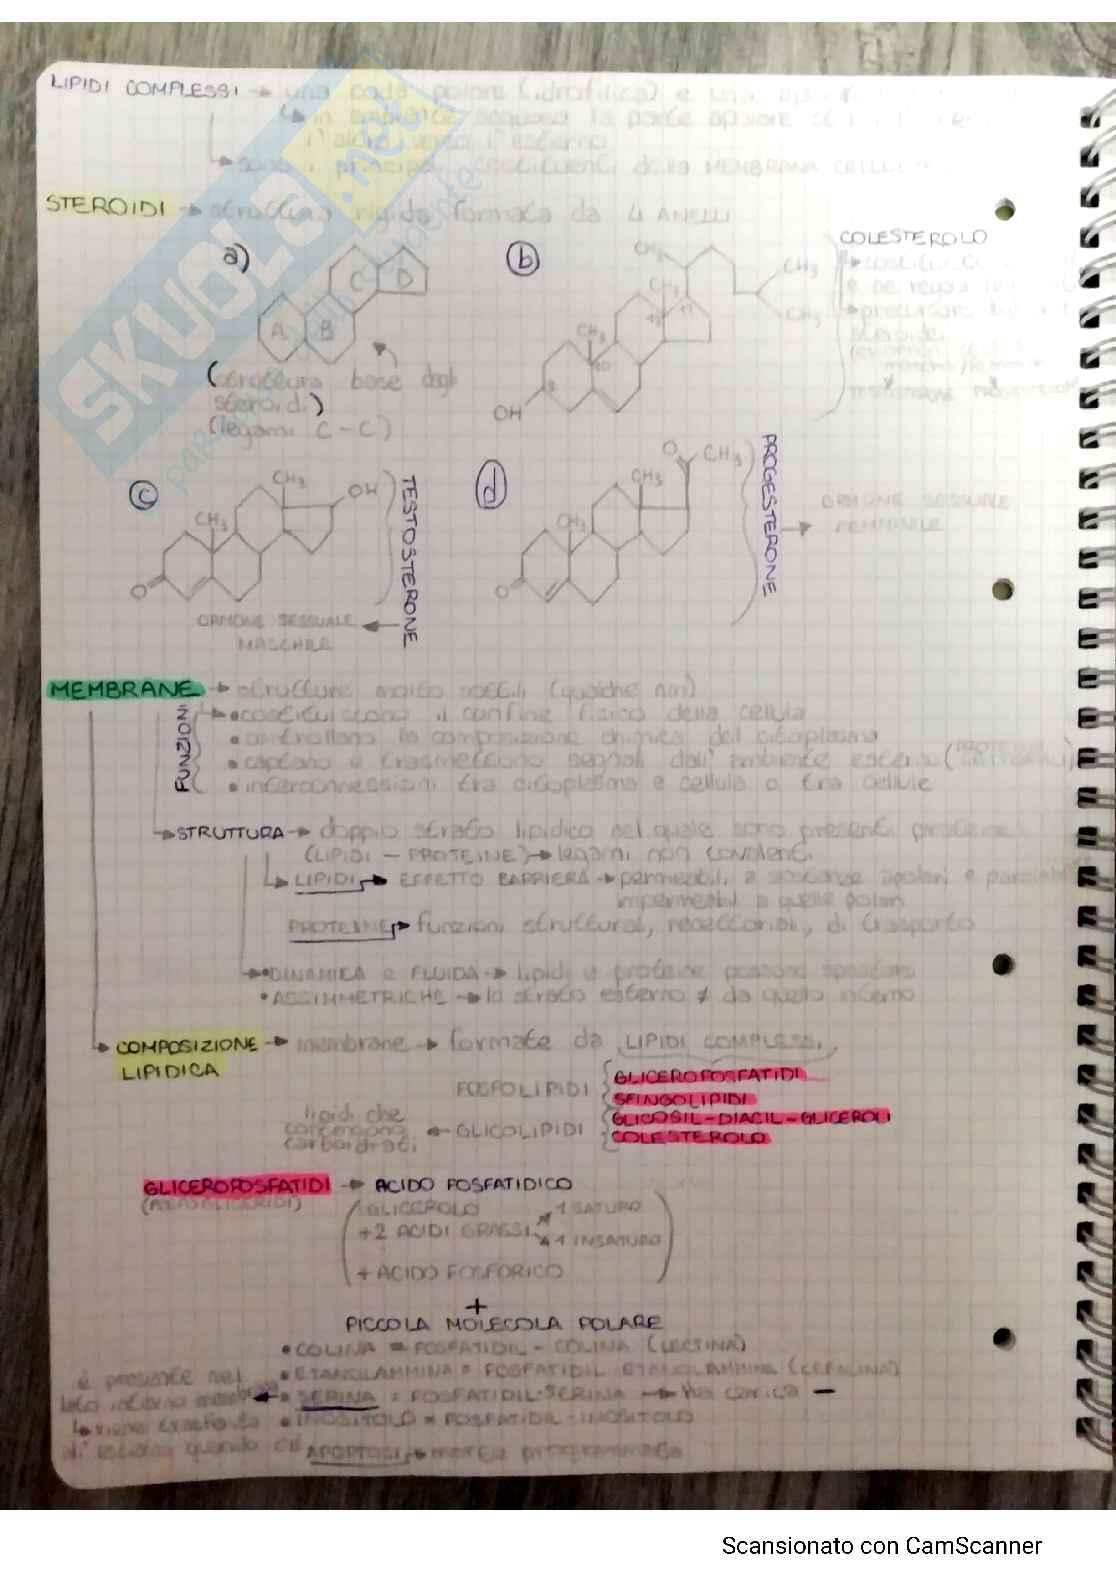 LIPIDI COMPLESSI → una coda polare (idrofilica) e una
↳ in ambiente acquoso la parte apolare
l'altra verso l'esterno
↳ sono i principali costituenti della MEMBRANA
STEROIDI → struttura rigida formata da 4 ANELLI
a)
A B C D
(struttura base degli
steroidi)
(legami C-C)
b
CH3
CH3
CH3
CH3
CH3
10
OH
COLESTEROLO
precursore
steroidei
c
CH3
OH
CH3
O
TESTOSTERONE
ORMONE SESSUALE
MASCHILE
d
O
CH3
CH3
CH3
O
PROGESTERONE
→ ORMONE SESSUALE
FEMMINILE
MEMBRANE → strutture molto sottili (qualche nm)
FUNZIONI
• costituiscono il confine fisico della cellula
• controllano la composizione chimica del citoplasma
• captano e trasmettono segnali dall'ambiente esterno
• interconnessioni tra citoplasma e cellula o tra cellule
→ STRUTTURA → doppio strato lipidico nel quale sono presenti proteine
(LIPIDI - PROTEINE) → legami non covalenti
↳ LIPIDI → EFFETTO BARRIERA → permeabili a sostanze apolari e
impermeabili a quelle polari
PROTEINE → funzioni strutturali, recettoriali, di trasporto
• DINAMICA e FLUIDA → lipidi e proteine possono spostarsi
• ASSIMMETRICHE → lo strato esterno ≠ da quello interno
→ COMPOSIZIONE → membrane → formate da LIPIDI COMPLESSI
LIPIDICA
FOSFOLIPIDI { GLICEROFOSFATIDI
SFINGOLIPIDI
lipidi che
contengono ← GLICOLIPIDI { GLICOSIL-DIACIL-GLICEROLI
carboidrati
COLESTEROLO
GLICEROFOSFATIDI → ACIDO FOSFATIDICO
1 GLICEROLO
+2 ACIDI GRASSI → 1 SATURO
→ 1 INSATURO
+ ACIDO FOSFORICO
+
PICCOLA MOLECOLA POLARE
• COLINA = FOSFATIDIL-COLINA (LECITINA)
• ETANOLAMMINA = FOSFATIDIL ETANOLAMMINA (CEFALINA)
è presente nel
lato interno ← • SERINA = FOSFATIDIL-SERINA → ha carica -
↳ viene trasferita • INOSITOLO = FOSFATIDIL-INOSITOLO
quando c'è APOPTOSI → morte programmata
SKUOLA.net
Scansionato con CamScanner